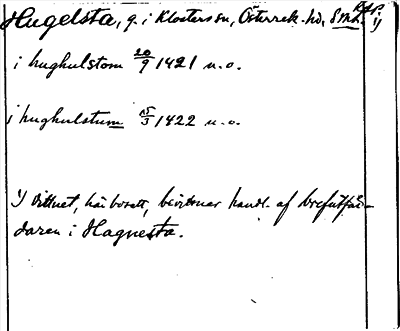 Hugelsta, g. i Klosters sn, Österrek. hd, Sml. RAP. 1)
i hughulstom 20/9 1421 u.o.
i hughulstum 15/3 1422 u.o.
1) Vittnet, här bosatt, bevittnar handl. af brefutfär-
daren i Hagnesta.